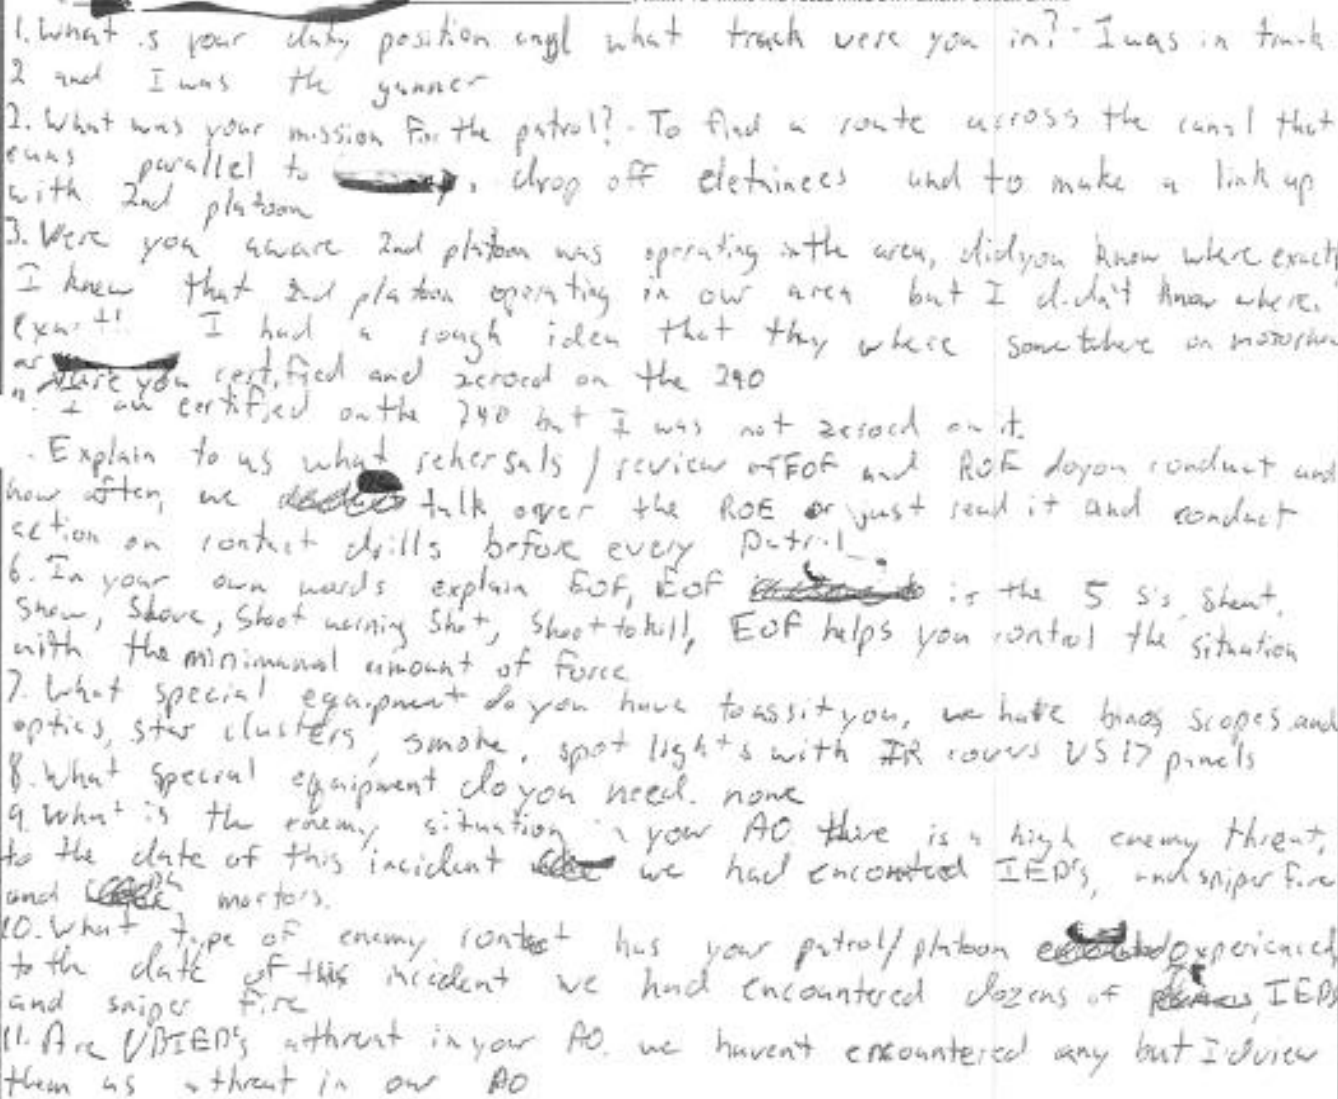 1. What is your duty position and what truck were you in? - I was in truck
2 and I was the gunner
2. What was your mission for the patrol? - To find a route across the canal that
runs parallel to , drop off detainees and to make a link up
with 2nd platoon
3. Were you aware 2nd platoon was operating in the area, did you know where exactly
I knew that 2nd platoon operating in our area but I didn't know where.
I had a rough idea that they where somewhere on
are you certified and zeroed on the 240
I am certified on the 240 but I was not zeroed on it.
. Explain to us what rehersals / review of EOF and ROE do you conduct and
how often, we talk over the ROE or just read it and conduct
action on contact drills before every patrol
6. In your own words explain EOF, EOF is the 5 S's Shout,
Show, Shove, Shoot warning Shot, Shoot to kill, EOF helps you control the situation
with the minimanal amount of force
7. What special equipment do you have to assit you, we have binos scopes and
optics, star clusters, smoke, spot lights with IR covers VS17 panels
8. What special equipment do you need. none
9. What is the enemy situation in your AO there is a high enemy threat,
to the date of this incident we had encounted IED's, and sniper fire
and mortors.
10. What type of enemy contact has your patrol/platoon experienced
to the date of this incident we had encountered dozens of IEDs
and sniper fire
11. Are VBIED's a threat in your AO. we haven't encountered any but I d view
them as a threat in our AO